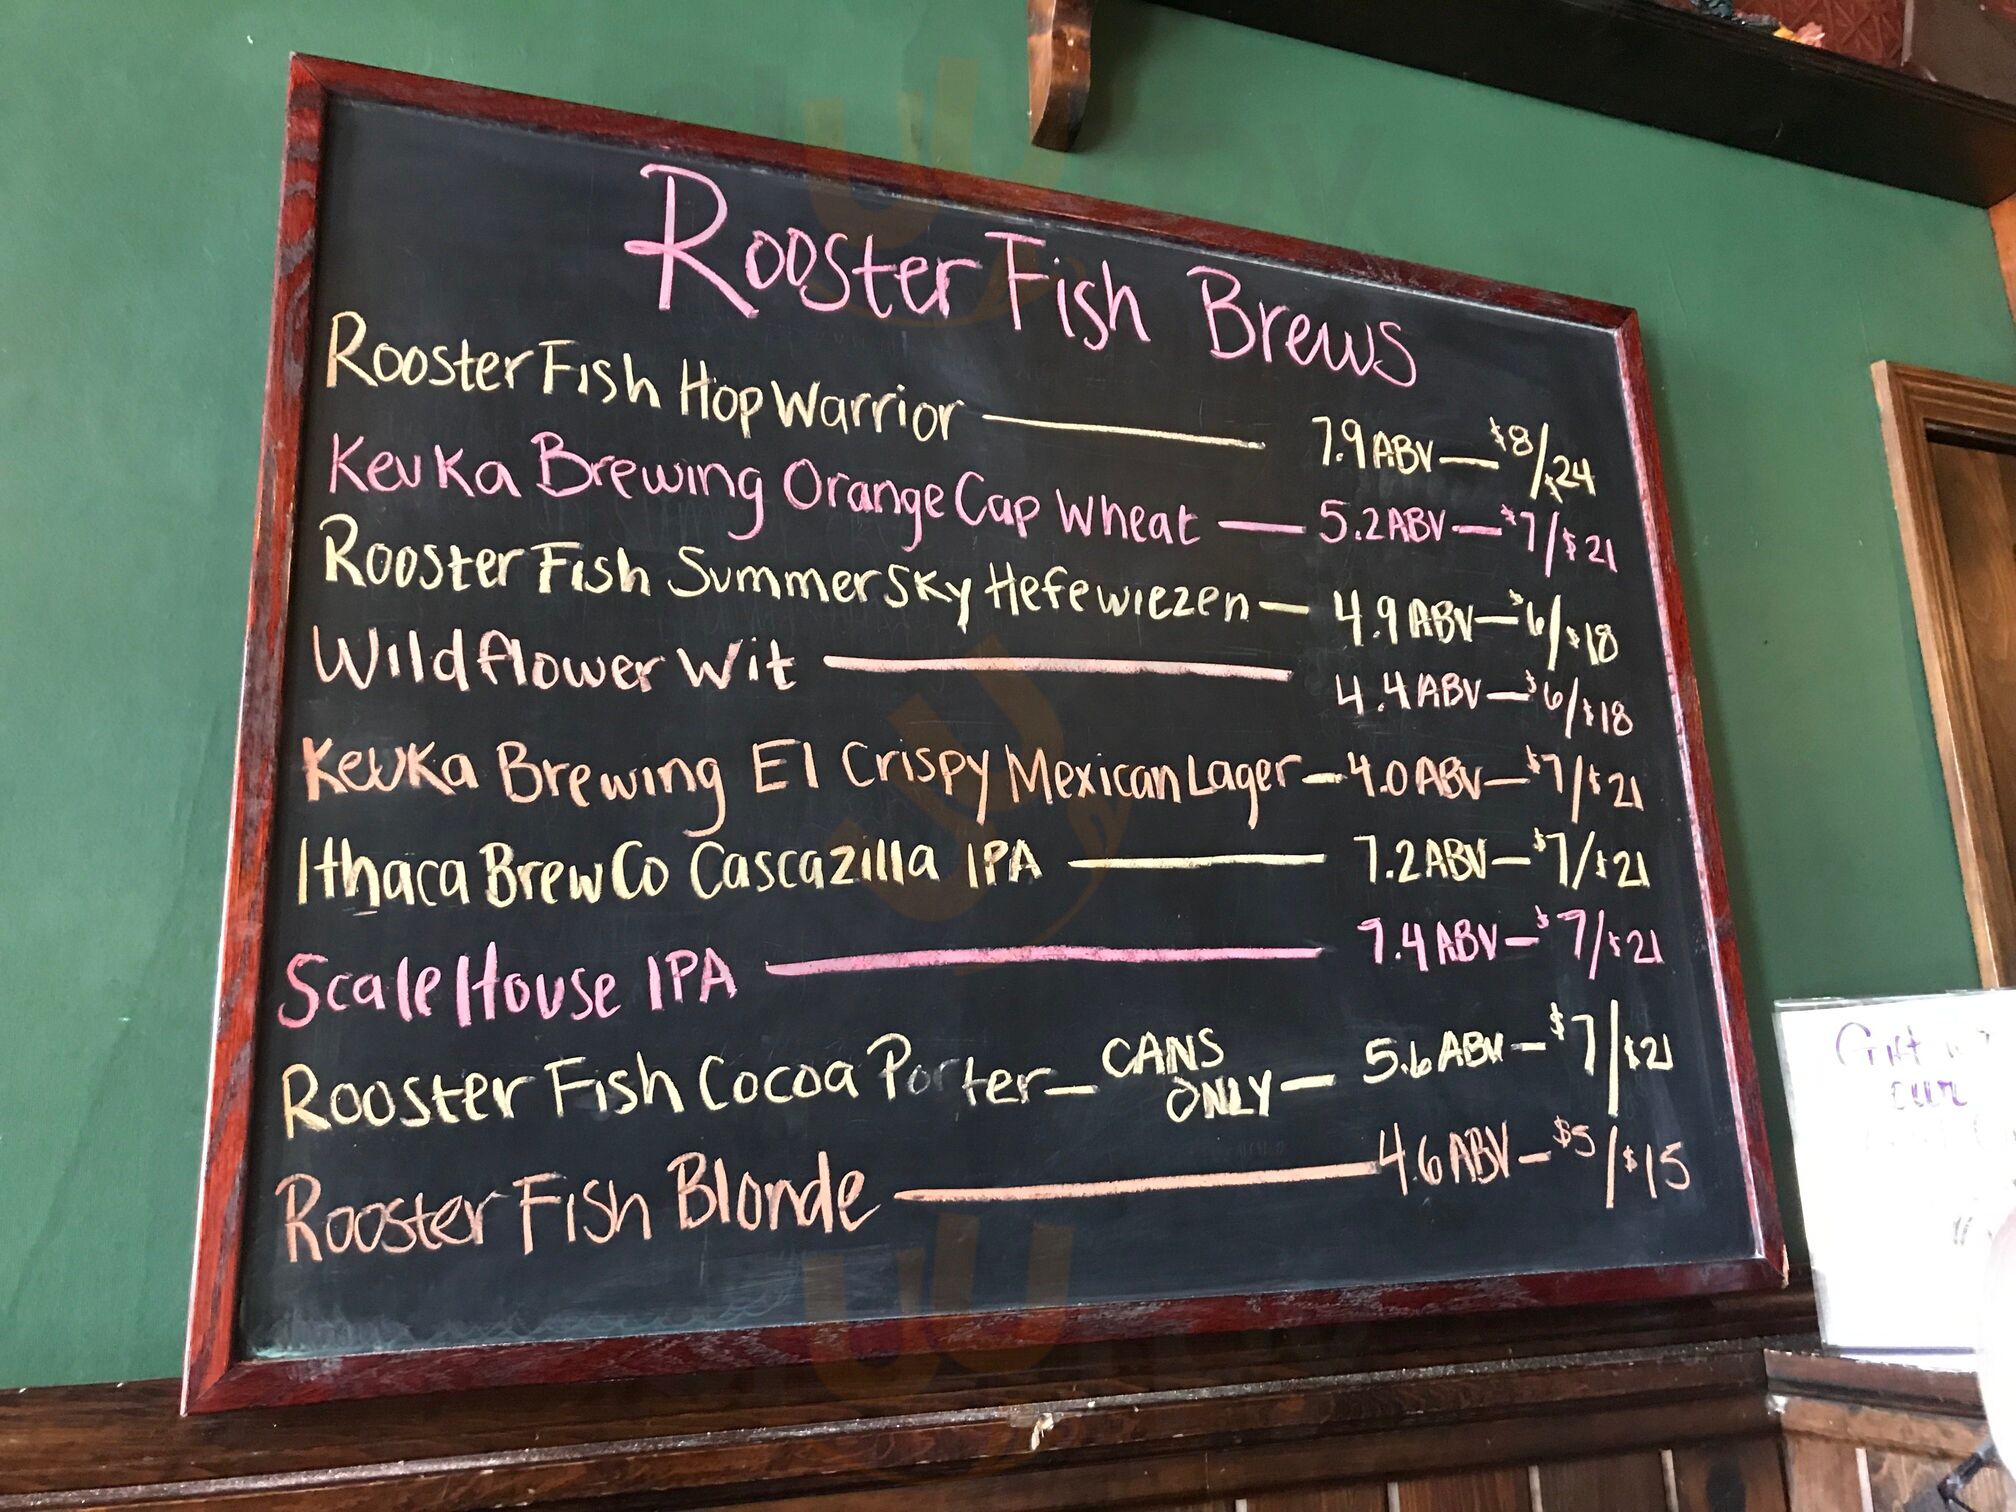 Rooster Fish Brews
Rooster Fish Hop Warrior — 7.9 ABV — $8/$24
Keuka Brewing Orange Cap Wheat — 5.2 ABV — $7/$21
Rooster Fish Summer Sky Hefewiezen — 4.9 ABV — $6/$18
Wildflower Wit — 4.4 ABV — $6/$18
Keuka Brewing El Crispy Mexican Lager — 4.0 ABV — $7/$21
Ithaca Brew Co Cascazilla IPA — 7.2 ABV — $7/$21
Scale House IPA — 7.4 ABV — $7/$21
Rooster Fish Cocoa Porter — CANS ONLY — 5.6 ABV — $7/$21
Rooster Fish Blonde — 4.6 ABV — $5/$15
Gift
our